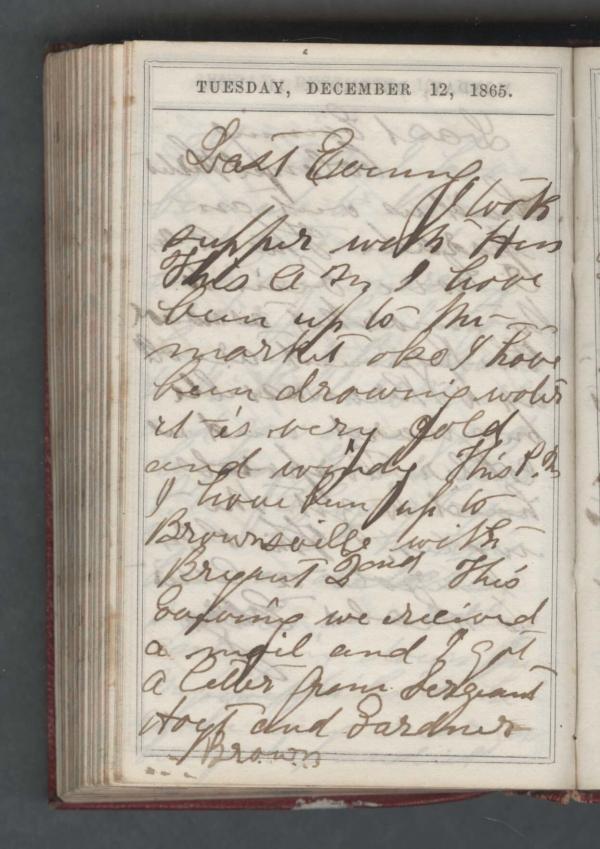 TUESDAY, DECEMBER 12, 1865.
Last Evening
I took
supper with
This A M I have
been up to the
market also I have
been drawing water
it is very cold
and windy This P. M
I have been up to
Brownsville with
Bryant 2nd This
evening we recieved
a mail and I got
a letter from Sergeant
Hoyt and Gardner
Brown